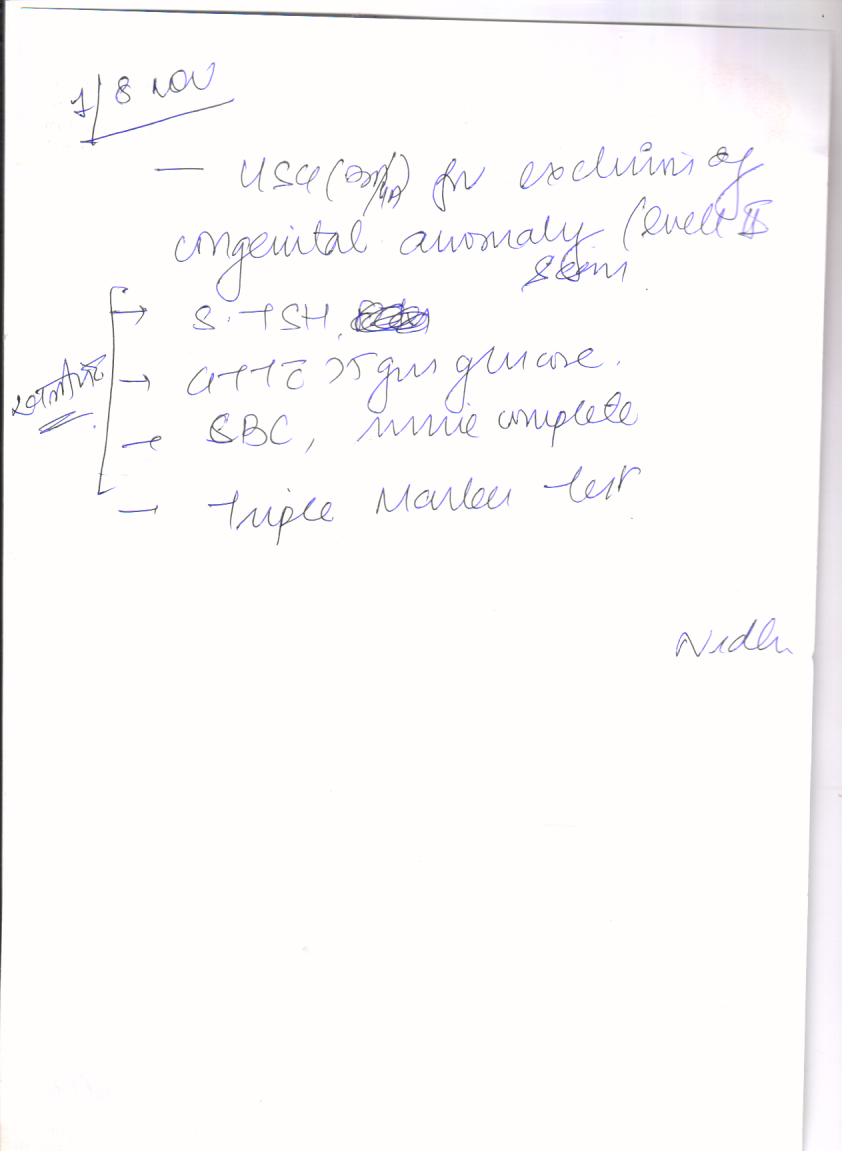 7/8 NOV
— USG ( ) for exclusion of
congenital anomaly (level II
scan
→ S. TSH,
→ GTT c̄ 75 gms glucose.
→ CBC, urine complete
→ Triple Marker test
Nidhi